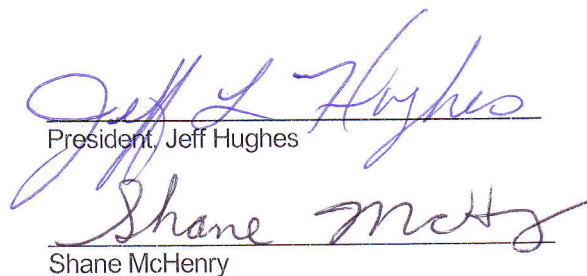 Jeff L Hughes
President, Jeff Hughes
Shane McHy
Shane McHenry